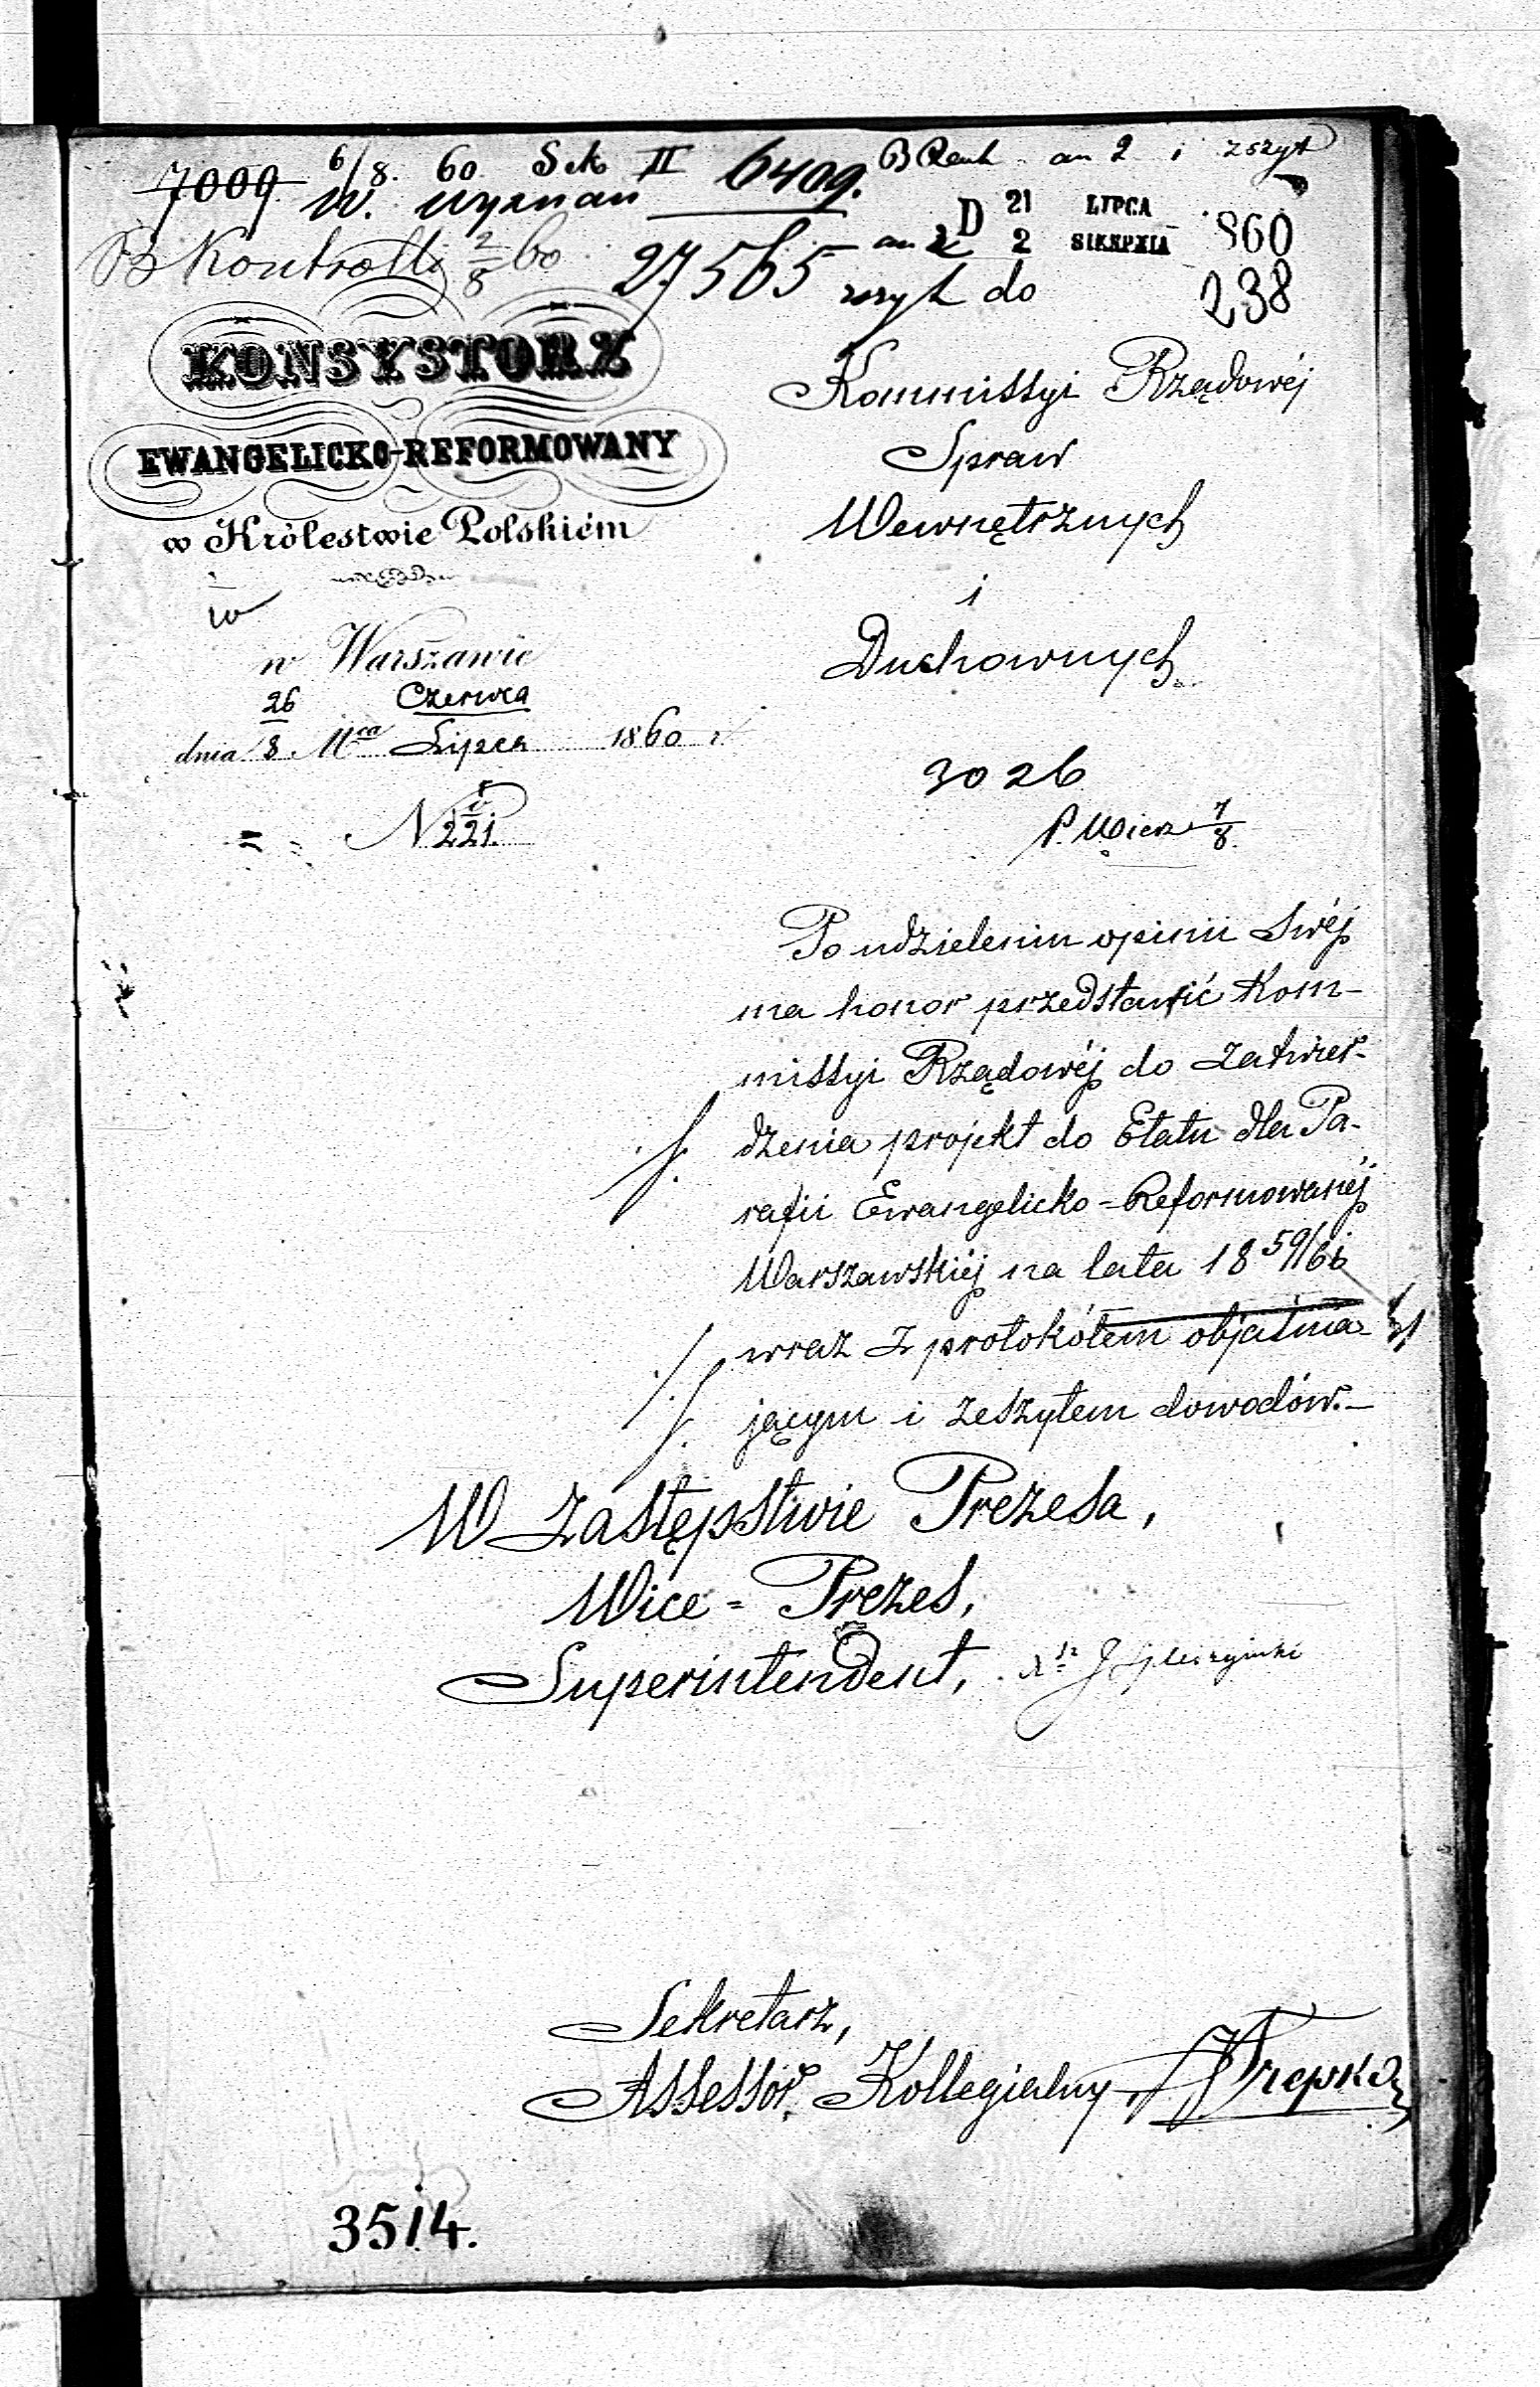 7009 6/8. 60. Sek II 6409. an 2 i zszyt
W. wyznań
D 21 LIPCA 2 SIERPNIA 860
B Kontrolli 2/8 60 27565 an 2 zszyt do 238
KONSYSTORZ
EWANGELICKO-REFORMOWANY
w Królestwie Polskiém
w Warszawie
26 Czerwca
dnia 8 Mca Lipca 1860 r.
N 221.
Kommissyi Rządowéj
Spraw
Wewnętrznych
i
Duchownych
3026
7/8
Po udzieleniu opinii Swéj
ma honor przedstawić Kom-
missyi Rządowéj do zatwier-
dzenia projekt do Etatu dla Pa-
rafii Ewangelicko-Reformowanéj
Warszawskiéj na lata 18 59/61
wraz z protokółem objaśnia-
jącym i zeszytem dowodów.
W Zastępstwie Prezesa,
Wice-Prezes,
Superintendent,
Sekretarz,
Assessor Kollegialny,
3514.